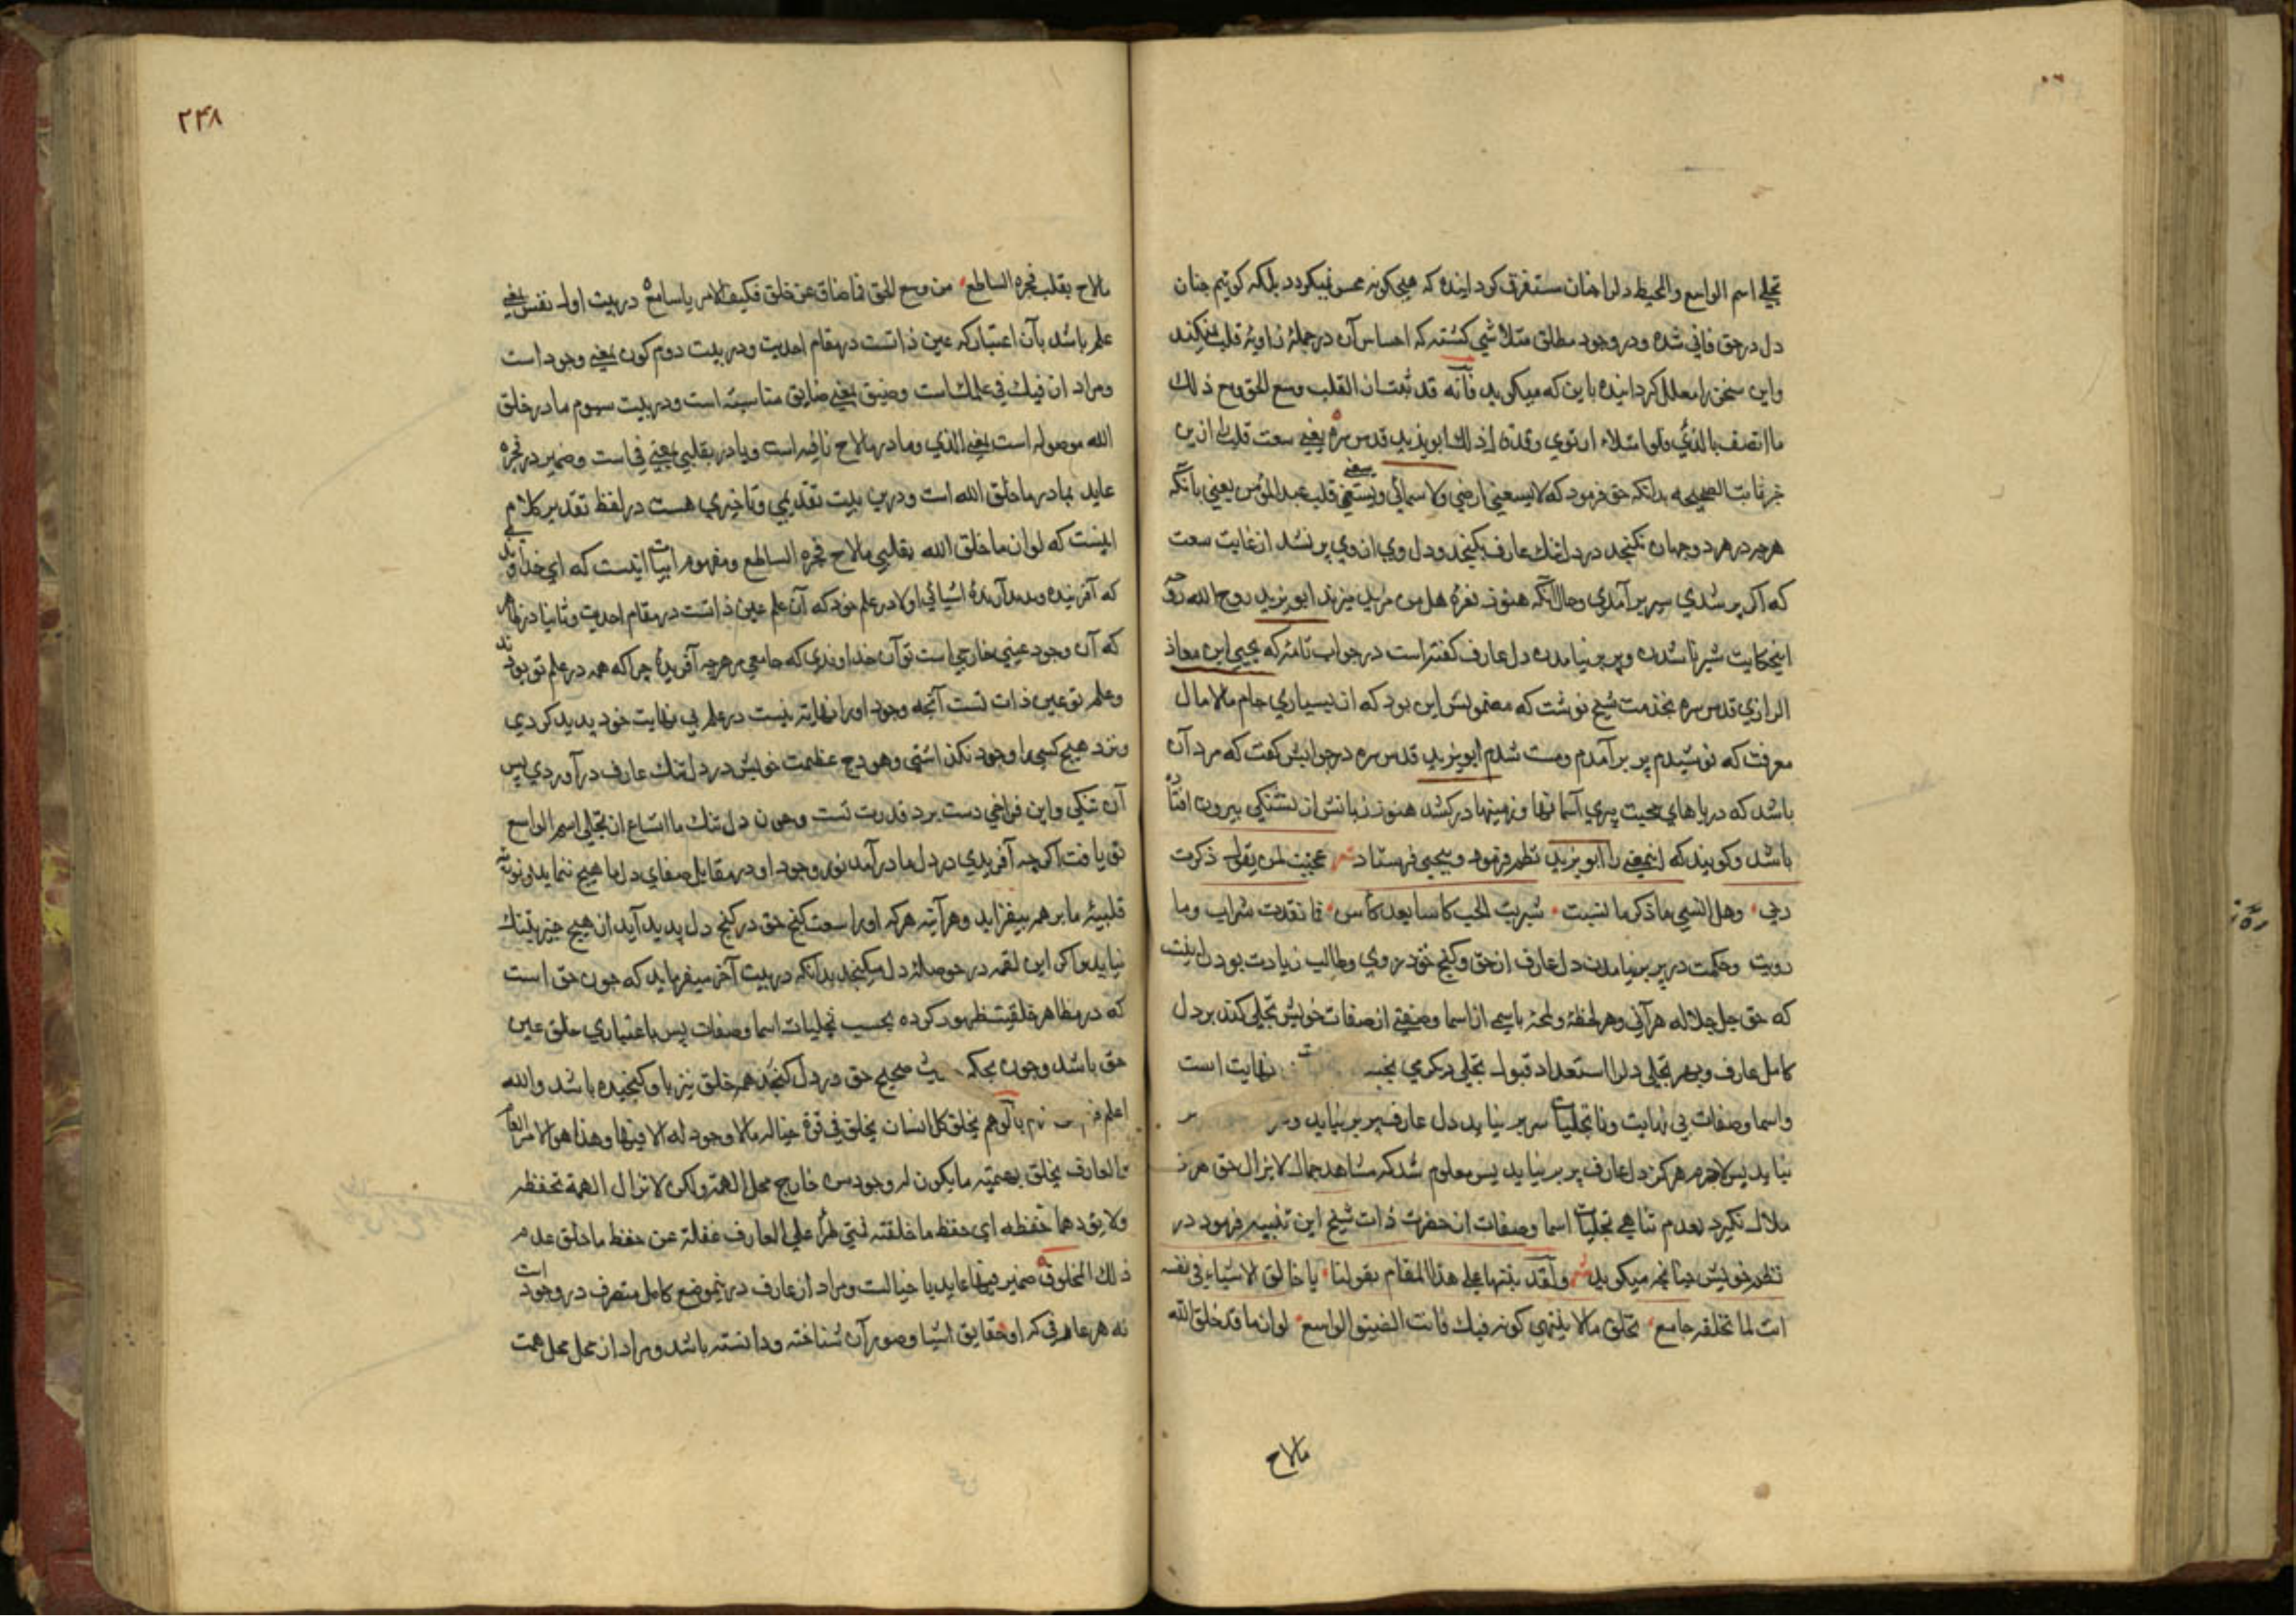 تجلی اسم الواسع والمحیط دلرا چنان مستغرق کردانیده که هیچکونه محس نمیکردد بلکه کوئیم چنان
دل در حق فانی شده و در وجود مطلق متلاشی کشته که احساس آن در جملهٔ زاویهٔ قلب نمیکند
واین سخن را معلل کردانیده باین که میکوید فانه قد ثبت ان القلب وسع الحق ومع ذلك
ما اتصف بالرّی فلو امتلاء ارتوی وقد قال ذلك ابو یزید قدس سره یعنی سعت قلب از این
خبر ثابت الصحیح بدانکه حق فرمود که لا یسعنی ارضی ولا سمائی ویسعنی قلب عبد المؤمن یعنی بآنکه
هرچه در هر دو جهان نکنجد در دل تنك عارف بکنجد ودل وی از وی پر نشد از غایت سعت
که اکر پر شدی سیر بر آمدی وحال آنکه هنوز نعرهٔ هل من مزید میزند ابو یزید روح الله روحه
اینحکایت سیر ناشدن و پر بر نیامدن دل عارف کفته است در جواب نامهٔ که یحیی ابن معاذ
الرازی قدس سره بخدمت شیخ نوشت که مضمونش این بود که از بسیاری جام مالامال
معرفت که نوشیدم پر بر آمدم و مست شدم ابو یزید قدس سره در جوابش کفت که مرد آن
باشد که دریاهای محبت پری آسمانها و زمینها در کشد هنوز زبانش از تشنکی بیرون افتاده
باشد وکویند که اینمعنی را ابو یزید نظم فرمود و بیحیی فرستاد شعر عجبت لمن یقول ذکرت
ربی وهل انسی ما ذکر ما نسیت شربت الحب کاسا بعد کاس فما نفدت شراب وما
رویت وحکمت در پر بر نیامدن دل عارف از حق و کنج حق در وی وطالب زیادت بودن اینست
که حق جل جلاله هر آنی وهر لحظهٔ ولمحهٔ باسمی از اسما وصفتی از صفات خویش تجلی کند بر دل
کامل عارف وبهر تجلی دلرا استعداد قبول تجلی دیکری نهایت است
واسما وصفات بی نهایت وتا تجلیات سر بر نیاید دل عارف پر بر نیاید
نیاید پس لاجرم هرکز دل عارف پر بر نیاید پس معلوم شد که مشاهد جمال لا یزال حق هرکز
ملال نکیرد بعدم تناهی تجلیات اسما وصفات از حضرت ذات شیخ این تنبیه فرمود در
نظم خویش چنانچه میکوید شعر ولقد نبهنا علی هذا المقام بقولنا یا خالق الاشیاء فی نفسه
انت لما تخلقه جامع تخلق ما لا ینتهی کونه فیك فانت الضیق الواسع لو ان ما قد خلق الله
مالاح
۲۴۸
مالاح بقلبی فجره الساطع من وسع الحق فما ضاق عن خلق فکیف الامر یا سامع در بیت اول نفس یعنی
علم باشد بآن اعتبار که عین ذاتست در مقام احدیت ودر بیت دوم کون یعنی وجود است
ومراد از فیك فی علمك است وضیق یعنی ضایق متناسبة است ودر بیت سیوم ما در خلق
الله موصوله است یعنی الذی وما در مالاح نافیه است وبا در بقلبی بمعنی فی است وضمیر در فجره
عاید بما در ما خلق الله است ودرین بیت تقدیمی وتاخیری هست در لفظ تقدیر کلام
اینست که لو ان ما خلق الله بقلبی مالاح فجره الساطع ومفهوم ابیات اینست که ای خداوندی
که آفریننده وپدید آرندهٔ اشیائی اولا در علم خود که آن علم عین ذاتست در مقام احدیت وثانیا در خارج
که آن وجود عینی خارجی است تو آن خداوندی که جامعی هر هرچه آفریدهٔ چرا که همه در علم تو بودند
وعلم تو عین ذات تست آنچه وجود او را نهایة نیست در علم بی نهایت خود پدید کردی
ونزد هیچ کسی را وجود نکذاشتی وهودج عظمت خویش در دل تنك عارف در آوردی پس
آن تنکی واین فراخی دست برد قدرت تست وچون دل تنك ما اتساع از تجلی اسم الواسع
تو یافت اکرچه آفریدی در دل ما درآمد نور وجود او در مقابل صفای دل ما هیچ ننماید ونوریه
قلبیهٔ ما بر همه بیفزاید وهرآینه هرکه او را سعت کنج حق در کنج دل پدید آید از هیچ چیز بتنك
نیاید چرا کر این لقمه در حوصلهٔ دل میکنجد بدانکه در بیت آخر میفرماید که چون حق است
که در مظاهر خلقیت ظهور کرده بحسب تجلیات اسما وصفات پس باعتباری خلق عین
حق باشد وچون بحکم حدیث صحیح حق در دل کنجد هم خلق نیز با او کنجیده باشد والله
اعلم بالوهم یخلق کل انسان یخلق فی قوة خیاله مالا وجود له الا فیها وهذا هو الامر العام
والعارف یخلق بهمته ما یکون له وجود من خارج محل الهمة ولکن لا تزال الهمة تحفظه
ولا یؤدها حفظه ای حفظ ما خلقته فمتی طرأ علی العارف غفلة عن حفظ ما خلق عدم
ذلك المخلوق ضمیر فیها عاید با خیالست ومراد از عارف درینموضع کامل متصرف در وجود است
نه هر عارفی که او حقایق اشیا وصور آن شناخته ودانسته باشد ومراد از محل محل همت